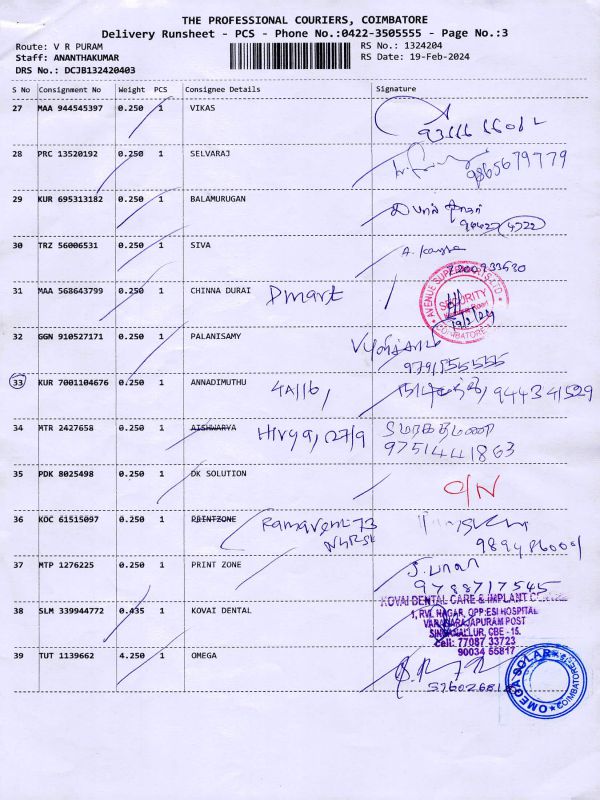 THE PROFESSIONAL COURIERS, COIMBATORE
Delivery Runsheet - PCS - Phone No.:0422-3505555 - Page No.:3
Route: V R PURAM RS No.: 1324204
Staff: ANANTHAKUMAR RS Date: 19-Feb-2024
DRS No.: DCJB132420403
S No Consignment No Weight PCS Consignee Details Signature
27 MAA 944545397 0.250 1 VIKAS
28 PRC 13520192 0.250 1 SELVARAJ 9865679779
29 KUR 695313182 0.250 1 BALAMURUGAN
30 TRZ 56006531 0.250 1 SIVA
31 MAA 568643799 0.250 1 CHINNA DURAI Dmart
AVENUE SUPERMARTS LTD
SECURITY
19/2/24
COIMBATORE
32 GGN 910527171 0.250 1 PALANISAMY
9791555555
33 KUR 7001104676 0.250 1 ANNADIMUTHU 4A116, 944341529
34 MTR 2427658 0.250 1 AISHWARYA
9751441863
35 PDK 8025498 0.250 1 DK SOLUTION O/N
36 KOC 61515097 0.250 1 PRINTZONE
37 MTP 1276225 0.250 1 PRINT ZONE
9788717545
38 SLM 339944772 0.435 1 KOVAI DENTAL
KOVAI DENTAL CARE & IMPLANT CENTRE
1, RVL NAGAR, OPP:ESI HOSPITAL
VARADARAJAPURAM POST
SINGANALLUR, CBE - 15.
Cell: 77087 33723
90034 55817
39 TUT 1139662 4.250 1 OMEGA
OMEGA SOLAR
COIMBATORE